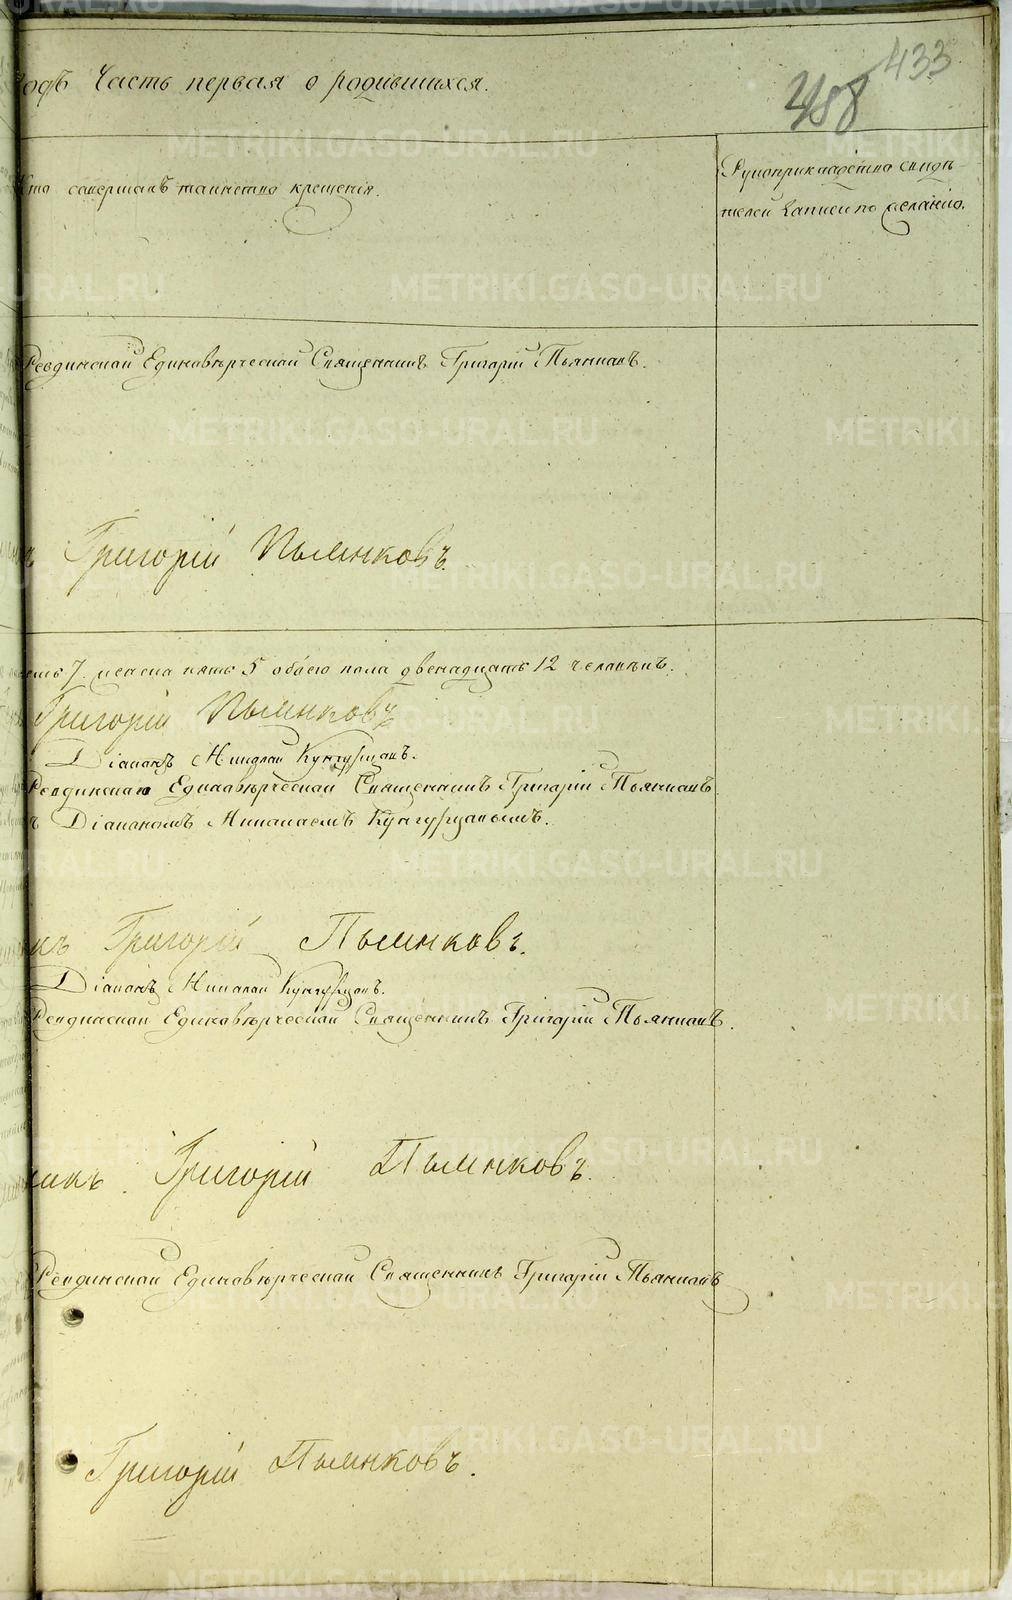 433
488
годъ Часть первая о родившихся.
Кто совершалъ таинство крещенія.
Рукоприкладство свидѣ
телей записи по желанію.
Ревдинской Единовѣрческой Священникъ Григорій Пьянковъ.
Григорій Пьянковъ.
7. женска пять 5 обоего пола двенадцать 12 человѣкъ.
Григорій Пьянковъ
Діаконъ Николай Кунгурцовъ.
Ревдинской Единовѣрческой Священникъ Григорій Пьянковъ
съ Діакономъ Николаемъ Кунгурцовымъ.
Григорій Пьянковъ.
Діаконъ Николай Кунгурцовъ.
Ревдинской Единовѣрческой Священникъ Григорій Пьянковъ.
Григорій Пьянковъ.
Ревдинской Единовѣрческой Священникъ Григорій Пьянковъ
Григорій Пьянковъ.
METRIKI.GASO-URAL.RU